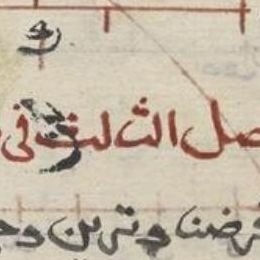 صل الثالث في
فرضنا وترين و